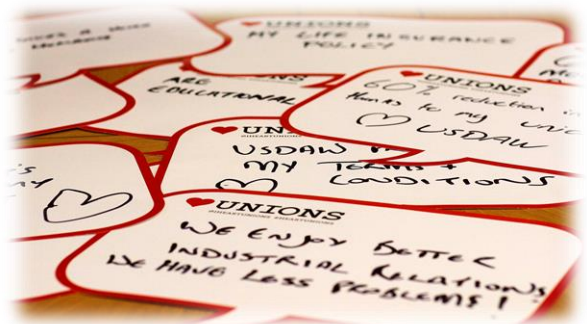 UNIONS
MY LIFE INSURANCE
POLICY
ARE
EDUCATIONAL
UNIONS
60% reduction in
thanks to my
USDAW
UN
USDAW
MY TERMS +
CONDITIONS
UNIONS
#IHEARTUNIONS #HEARTUNIONS
WE ENJOY BETTER
INDUSTRIAL RELATIONS
WE HAVE LESS PROBLEMS!